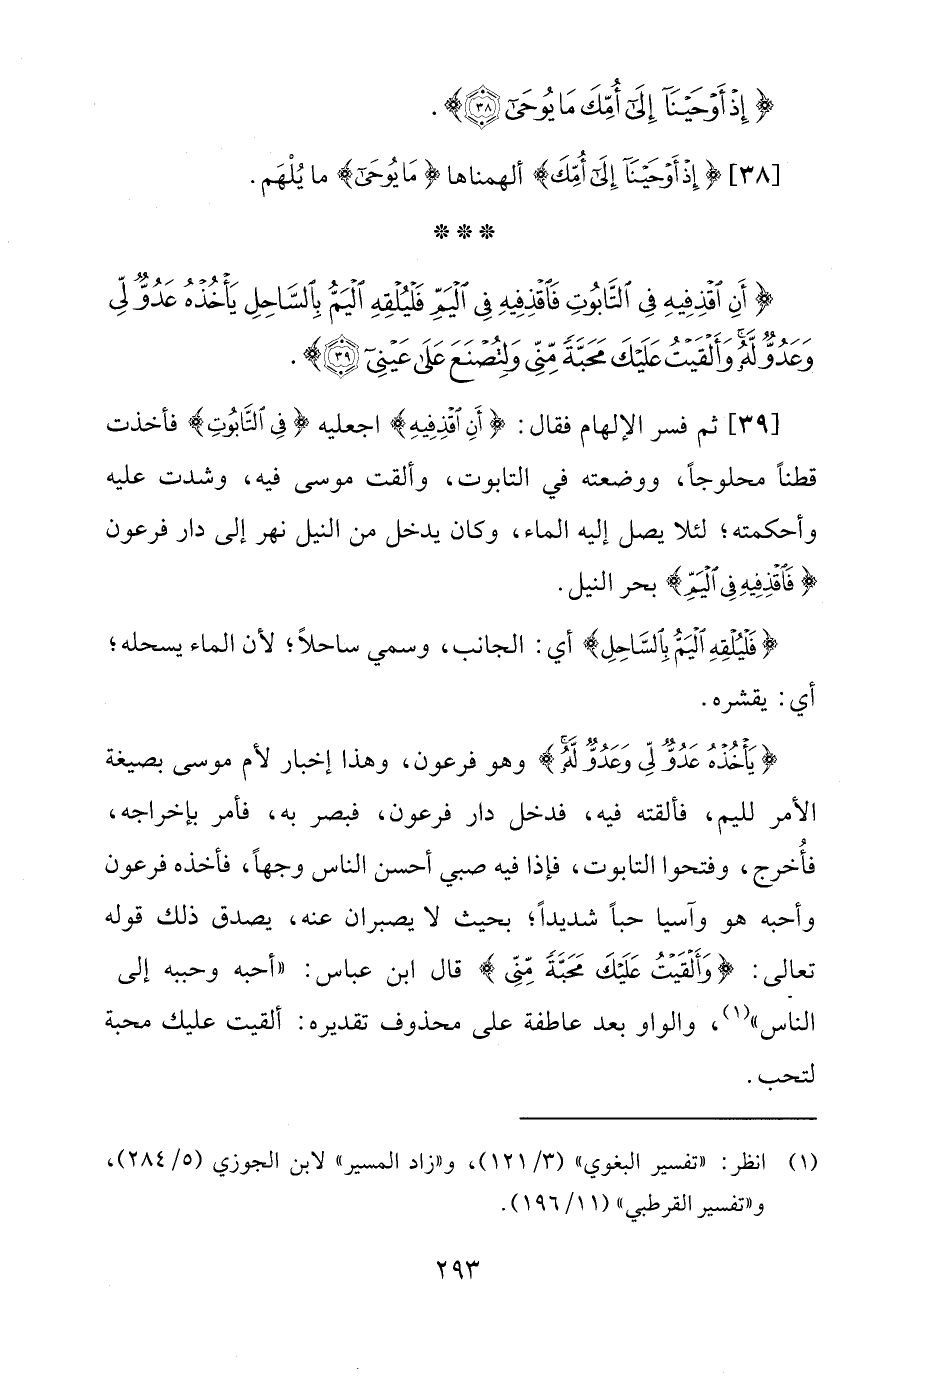 ﴿ إِذْ أَوْحَيْنَآ إِلَىٰٓ أُمِّكَ مَا يُوحَىٰٓ ﴿٣٨﴾﴾ .
[٣٨] ﴿ إِذْ أَوْحَيْنَآ إِلَىٰٓ أُمِّكَ﴾ ألهمناها ﴿ مَا يُوحَىٰٓ﴾ ما يُلْهَم .
* * *
﴿ أَنِ ٱقْذِفِيهِ فِى ٱلتَّابُوتِ فَٱقْذِفِيهِ فِى ٱلْيَمِّ فَلْيُلْقِهِ ٱلْيَمُّ بِٱلسَّاحِلِ يَأْخُذْهُ عَدُوٌّ لِّى
وَعَدُوٌّ لَّهُۥ ۚ وَأَلْقَيْتُ عَلَيْكَ مَحَبَّةً مِّنِّى وَلِتُصْنَعَ عَلَىٰ عَيْنِىٓ ﴿٣٩﴾﴾ .
[٣٩] ثم فسر الإلهام فقال : ﴿ أَنِ ٱقْذِفِيهِ﴾ اجعليه ﴿ فِى ٱلتَّابُوتِ﴾ فأخذت
قطناً محلوجاً، ووضعته في التابوت، وألقت موسى فيه، وشدت عليه
وأحكمته؛ لئلا يصل إليه الماء، وكان يدخل من النيل نهر إلى دار فرعون
﴿ فَٱقْذِفِيهِ فِى ٱلْيَمِّ﴾ بحر النيل .
﴿ فَلْيُلْقِهِ ٱلْيَمُّ بِٱلسَّاحِلِ﴾ أي : الجانب، وسمي ساحلاً؛ لأن الماء يسحله؛
أي : يقشره .
﴿ يَأْخُذْهُ عَدُوٌّ لِّى وَعَدُوٌّ لَّهُۥ ۚ﴾ وهو فرعون، وهذا إخبار لأم موسى بصيغة
الأمر لليم، فألقته فيه، فدخل دار فرعون، فبصر به، فأمر بإخراجه،
فأُخرج، وفتحوا التابوت، فإذا فيه صبي أحسن الناس وجهاً، فأخذه فرعون
وأحبه هو وآسيا حباً شديداً؛ بحيث لا يصبران عنه، يصدق ذلك قوله
تعالى : ﴿ وَأَلْقَيْتُ عَلَيْكَ مَحَبَّةً مِّنِّى ﴾ قال ابن عباس : «أحبه وحببه إلى
الناس»(١)، والواو بعد عاطفة على محذوف تقديره : ألقيت عليك محبة
لتحب .
(١) انظر : «تفسير البغوي» (٣/ ١٢١)، و«زاد المسير» لابن الجوزي (٥/ ٢٨٤)،
و«تفسير القرطبي» (١١/ ١٩٦).
٢٩٣